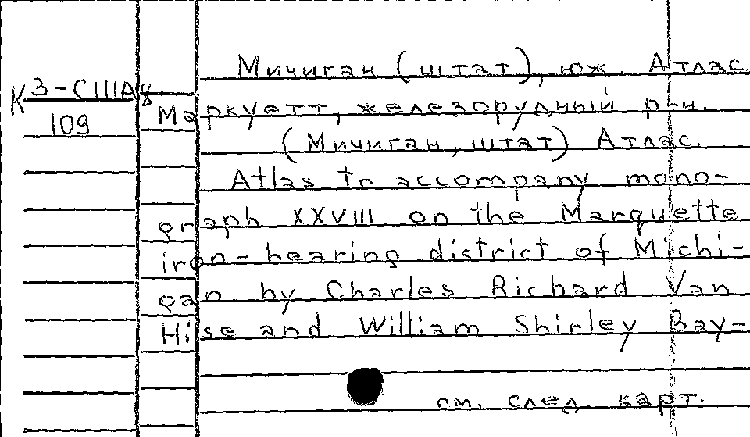 Мичиган (штат), юж. Атлас
К 3-США 8
109
Маркуетт, железорудный р-н.
(Мичиган, штат) Атлас.
Atlas to accompany mono-
graph XXVIII on the Marquette
iron-bearing district of Michi-
gan by Charles Richard Van
Hise and William Shirley Bay-
см. след. карт.